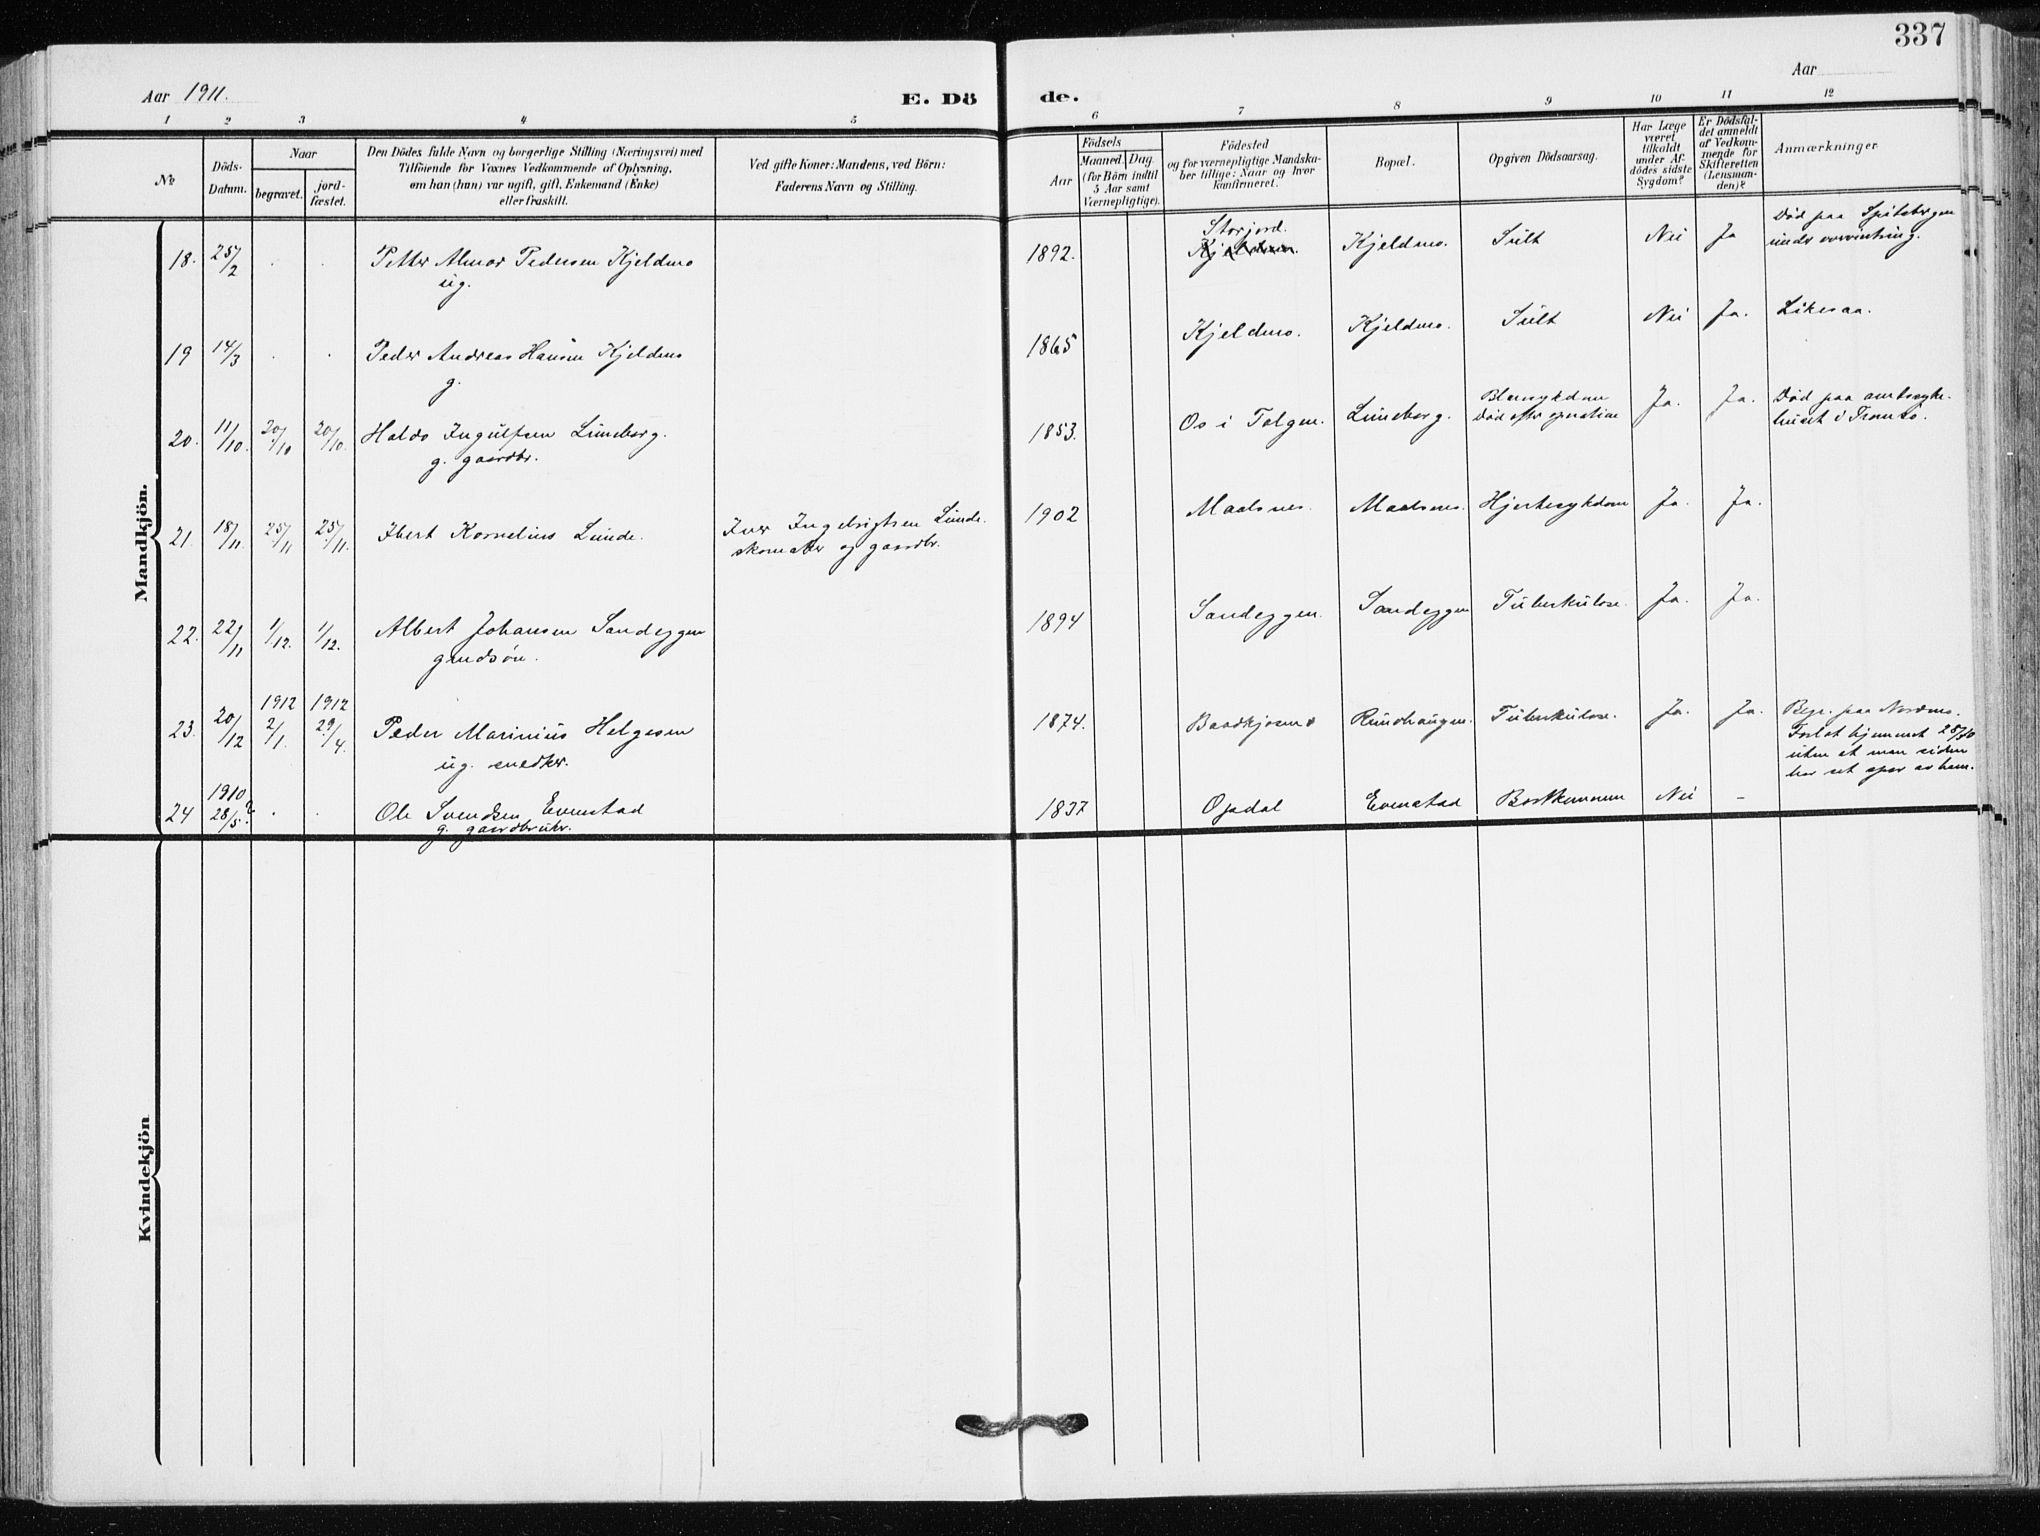 337
Aar 1911.
Aar
E. Döde.
1 2 3 4 5 6 7 8 9 10 11 12
№
Döds-Datum.
Naar
begravet.
jord-fæstet.
Den Dödes fulde Navn og borgerlige Stilling (Næringsvei) med
Tilföiende for Voxnes Vedkommende af Oplysning,
om han (hun) var ugift, gift, Enkemand (Enke)
eller fraskilt.
Ved gifte Koner: Mandens, ved Börn:
Faderens Navn og Stilling.
Födsels
Aar
Maaned. Dag.
(for Börn indtil
5 Aar samt
Værnepligtige).
Födested
og for værnepligtige Mandska-
ber tillige: Naar og hvor
konfirmeret.
Bopæl.
Opgiven Dödsaarsag.
Har Læge
været
tilkaldt
under Af-
dödes sidste
Sygdom?
Er Dödsfal-
det anmeldt
af Vedkom-
mende for
Skifteretten
(Lensman-
den)?
Anmærkninger
Mandkjön.
18. 25/2 . . Petter Almar Pedersen Kjeldmo
ug.
1892. Storjord. Kjeldmo. Sult Nei Ja
Død paa Spitsbergen
under overvintring.
19 14/3 . . Peder Andreas Hansen Kjeldmo
g.
1865 Kjeldmo. Kjeldmo. Sult Nei Ja. Likesaa.
20. 11/10. 20/10 20/10. Haldo Ingulfsen Luneborg.
g. gaardbr.
1853. Os i Tolgen. Luneborg. Blæresykdom
død efter operation
Ja. Ja. Død paa amtssyke-
huset i Tromsø.
21. 18/11. 25/11 25/11. Ibert Kornelius Lunde.
Iver Ingebrigtsen Lunde.
skomaker og gaardbr.
1902 Maalsnes. Maalsnes. Hjertesykdom Ja. Ja.
22. 22/11 1/12. 1/12. Albert Johansen Sandeggen
gmdsøn.
1894 Sandeggen. Sandeggen Tuberkulose. Ja. Ja.
23. 20/12 1912 2/1. 1912 29/4. Peder Marinius Helgesen
ug. snedker.
1874. Baadkjosmo Rundhaugen. Tuberkulose. Ja. Ja. Begr. paa Nordmo.
24 1910 28/5? . . Ole Svendsen Evenstad
g. gaardbruker.
1837 Opdal Evenstad Bortkommen Nei –
Forlot hjemmet 28/5 10
uten at man siden
har set spor av ham.
Kvindekjön